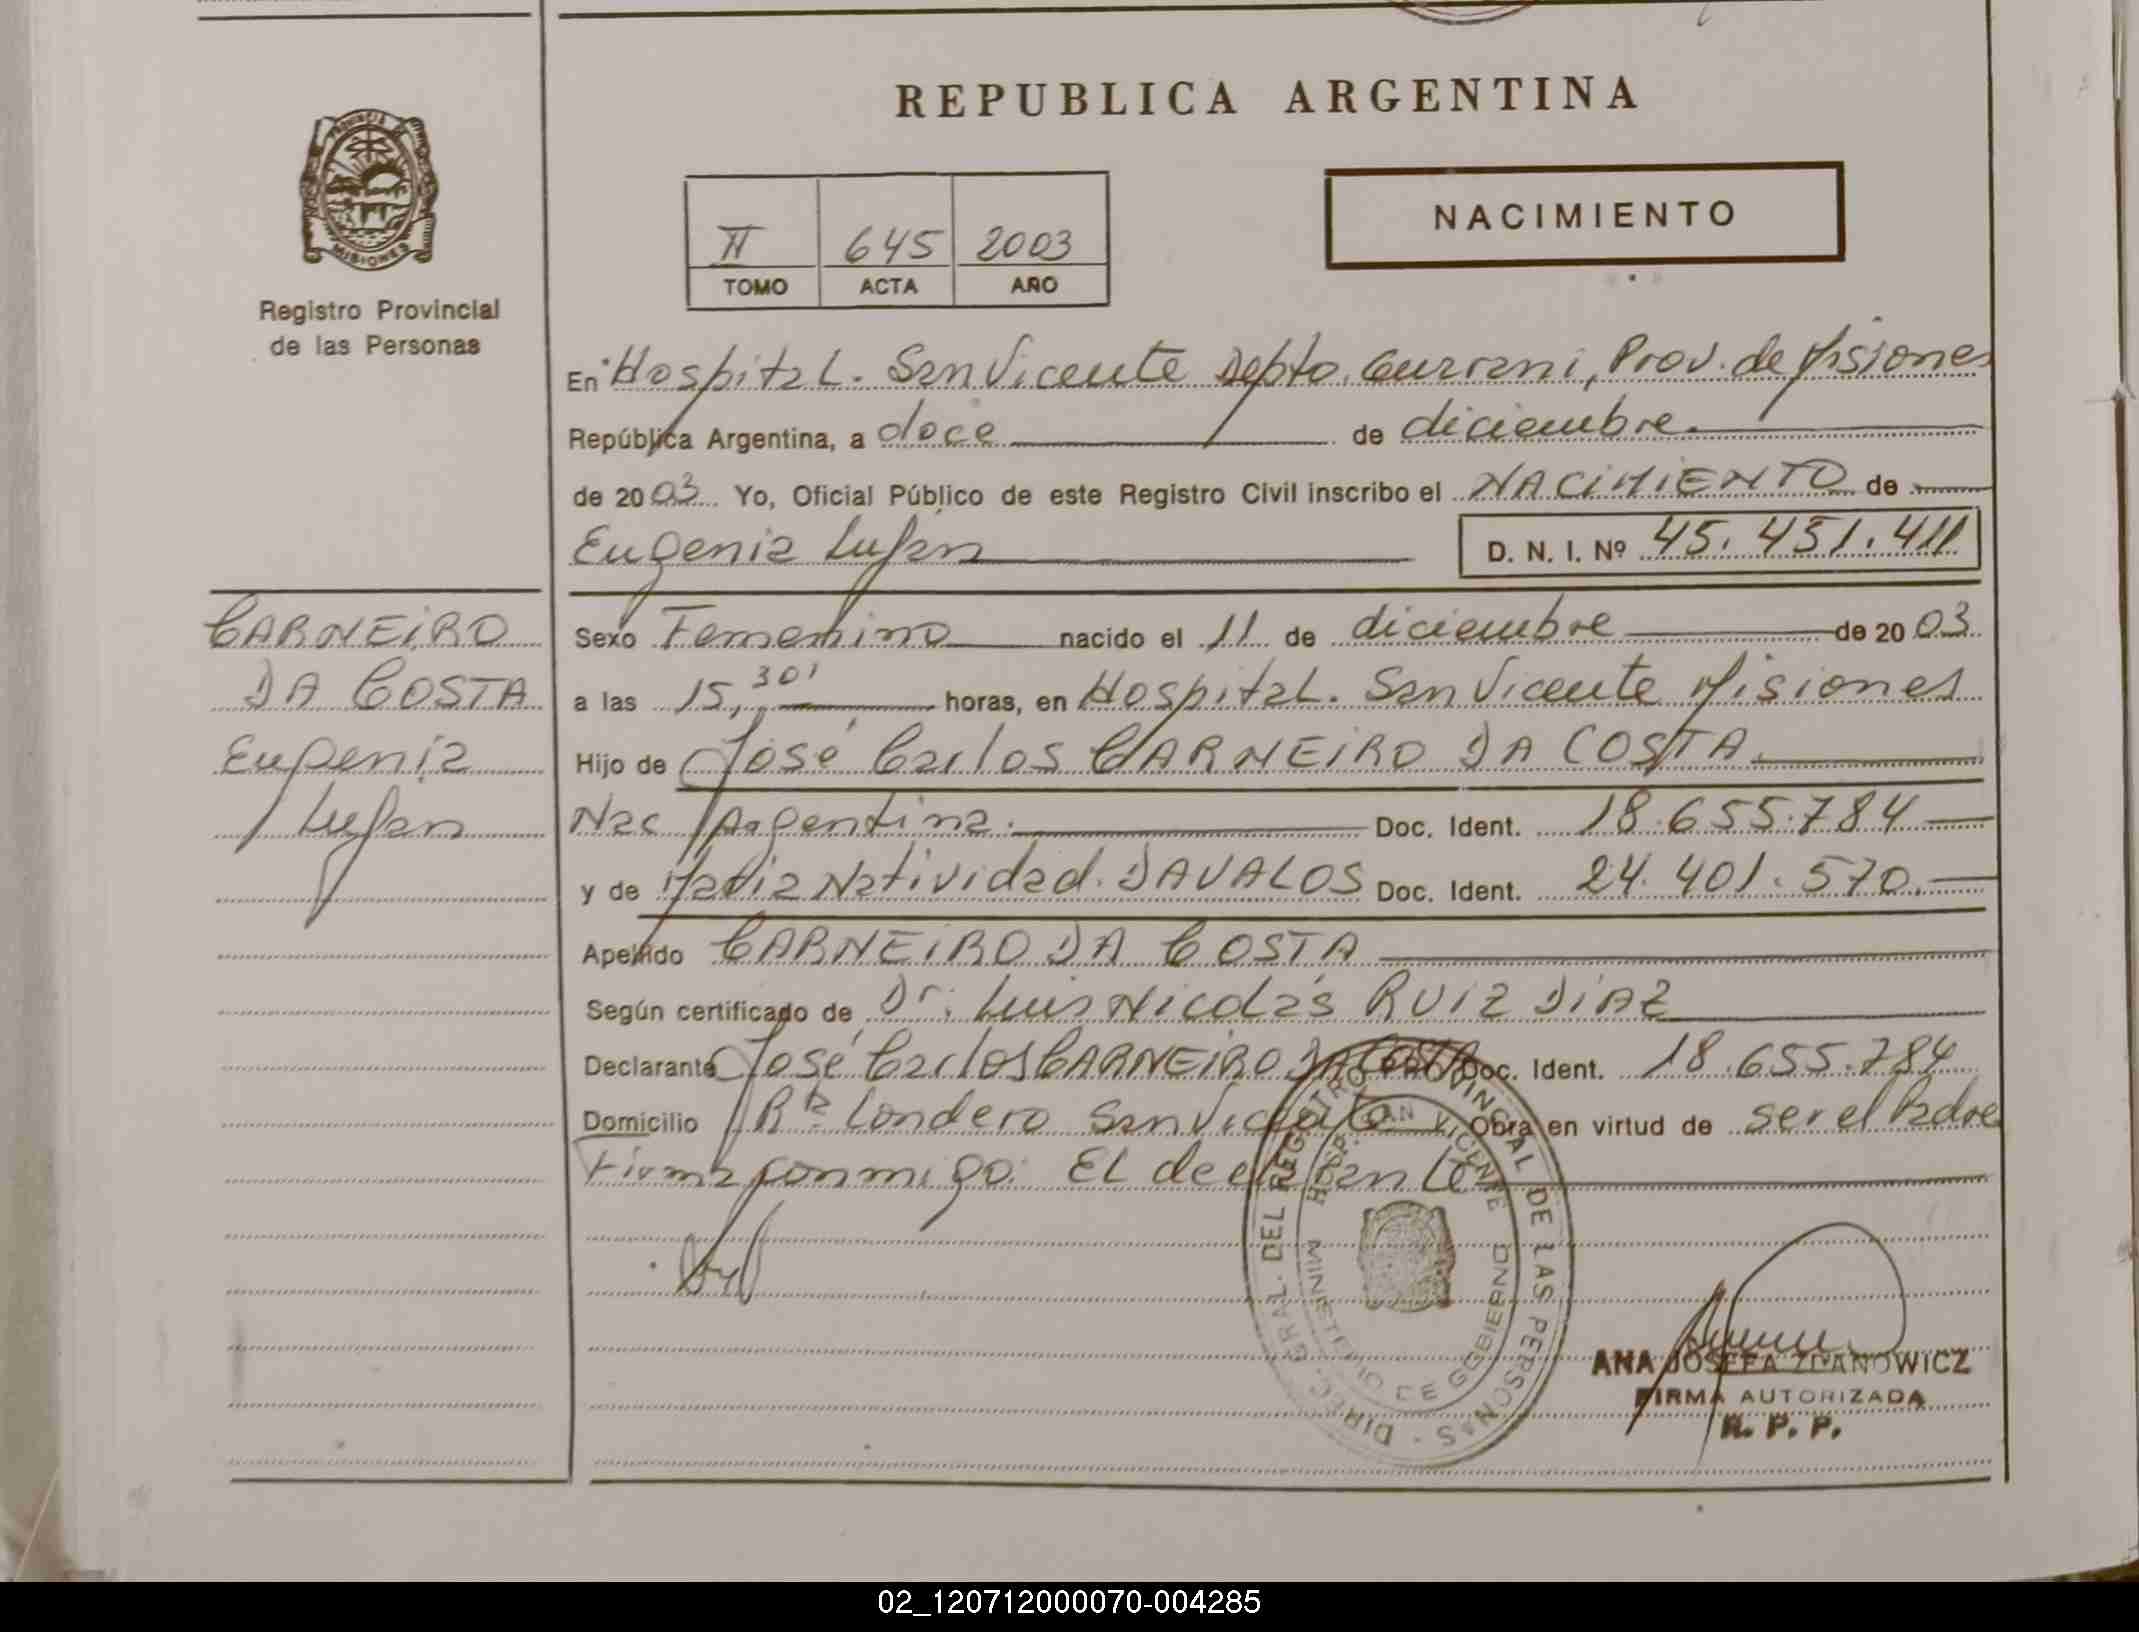 REPUBLICA ARGENTINA
PROVINCIA DE
MISIONES
Registro Provincial
de las Personas
II 645 2003
TOMO ACTA AÑO
NACIMIENTO
En Hospital. San Vicente Depto. Guarani, Prov. de Misiones
República Argentina, a doce de diciembre.
de 2003 Yo, Oficial Público de este Registro Civil inscribo el NACIMIENTO de
Eugenia Lujan D. N. I. Nº 45.431.411
CARNEIRO
DA COSTA
Eugenia
Lujan
Sexo Femenino nacido el 11 de diciembre de 2003
a las 15,30' horas, en Hospital. San Vicente Misiones
Hijo de José Carlos CARNEIRO DA COSTA.
Nac Argentina. Doc. Ident. 18.655.784
y de Maria Natividad. DAVALOS Doc. Ident. 24.401.570.
Apellido CARNEIRO DA COSTA
Según certificado de Dr. Luis Nicolás RUIZ DIAZ
Declarante José Carlos CARNEIRO DA COSTA Doc. Ident. 18.655.784
Domicilio Bº Londero San Vicente Obra en virtud de ser el Padre
Firma conmigo. EL declarante
DIREC. GRAL. DEL REGISTRO PROVINCIAL DE LAS PERSONAS
HOSP. SAN VICENTE
MINISTERIO DE GOBIERNO
ANA JOSEFA ZDANOWICZ
FIRMA AUTORIZADA
R. P. P.
02_120712000070-004285